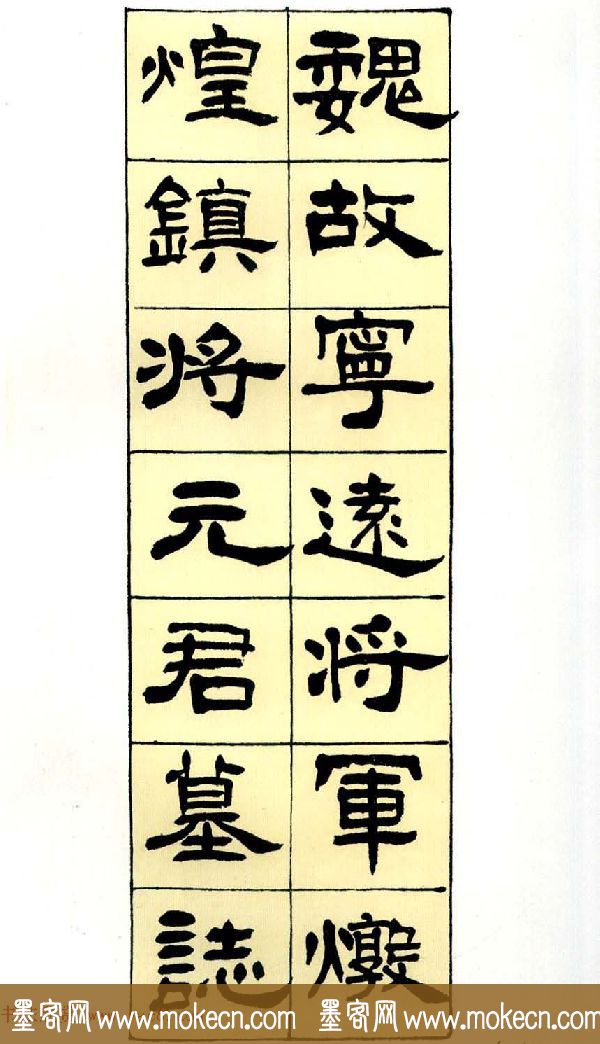 魏故寧遠將軍燉
煌鎮將元君墓誌
墨客网 www.mokecn.com 墨客网 www.mokecn.com